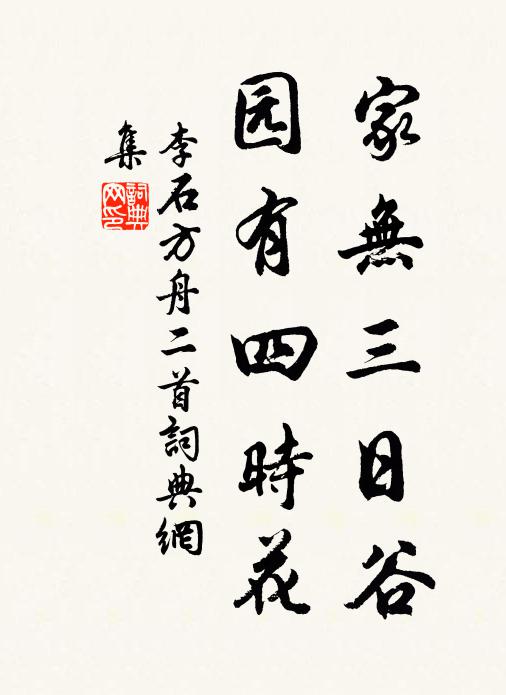 家無三日谷
园有四時花
李石方舟二首詞典網
集
詞典网印